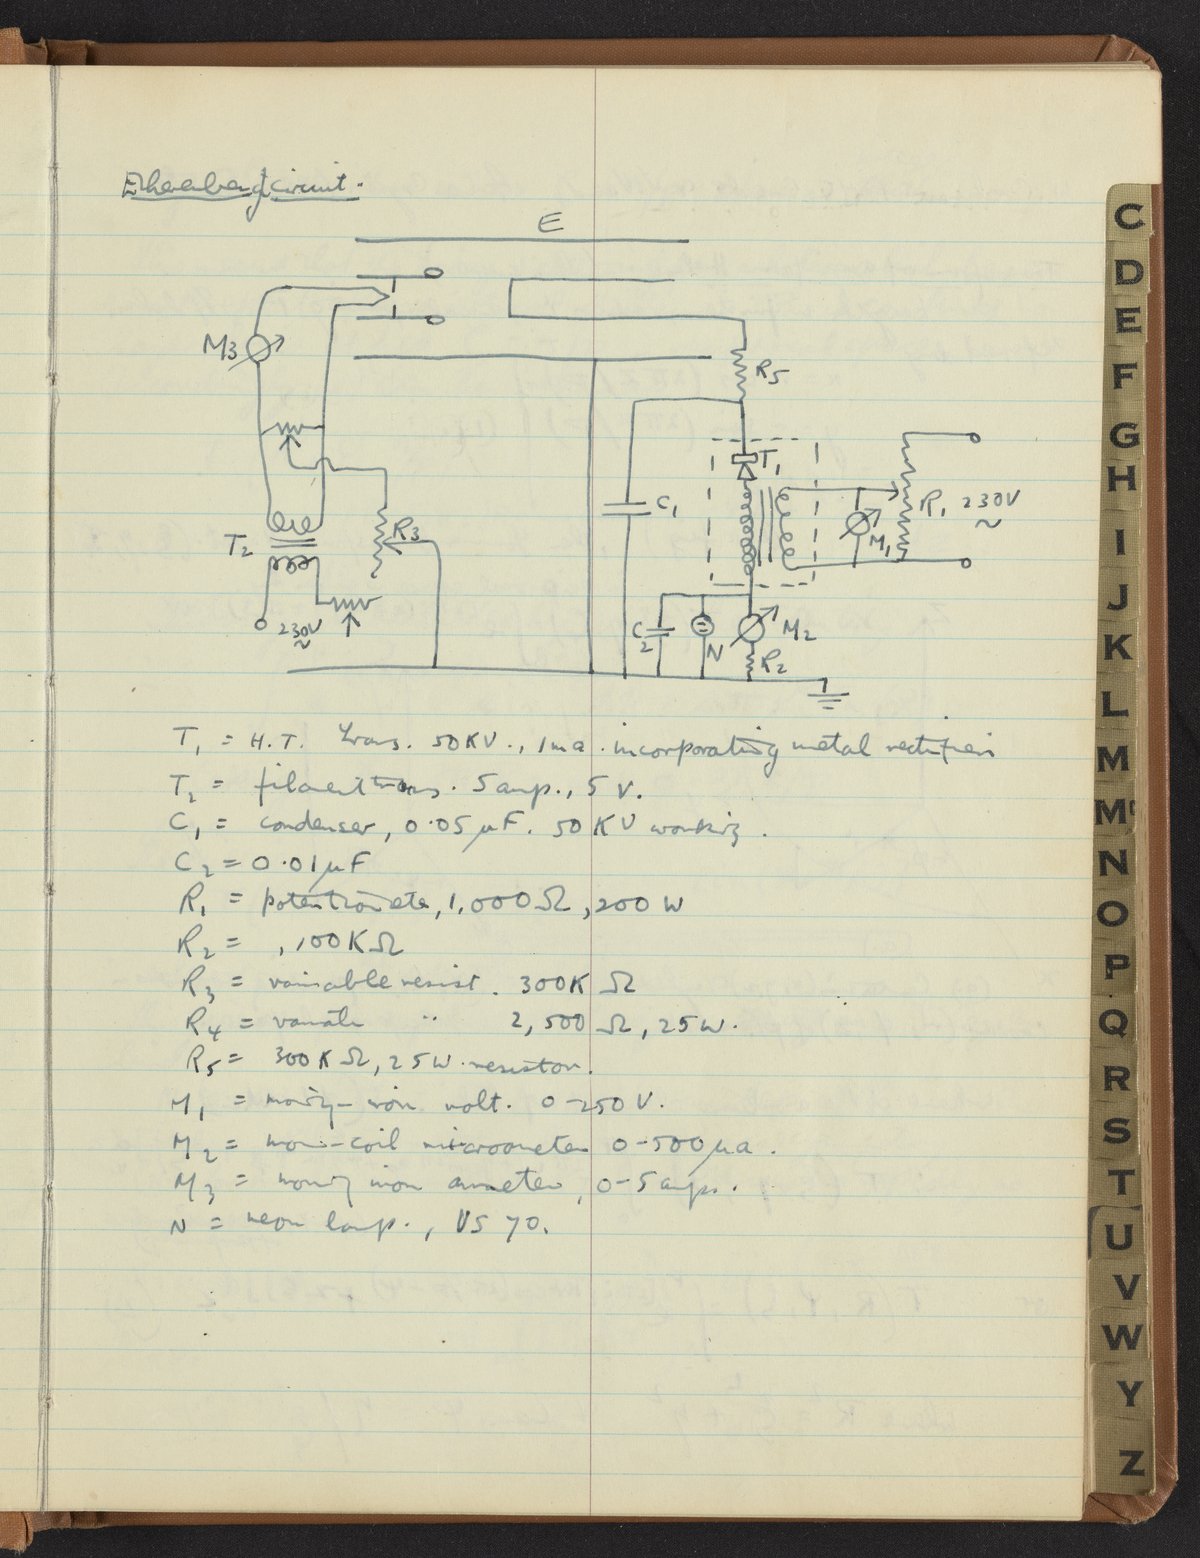 Ehrenberg circuit.
E
M3
R5
T1
C1
R1 230V
~
M1
T2
R3
230V
~
C2
N
M2
R2
T1 = H.T. trans. 50KV., 1ma. incorporating metal rectifiers
T2 = filament trans. 5 amp., 5 V.
C1 = condenser, 0.05 µF. 50 KV working.
C2 = 0.01 µF
R1 = potentiometer, 1,000 Ω, 200 W
R2 = , 100 K Ω
R3 = variable resist. 300K Ω
R4 = variable " 2,500 Ω, 25W.
R5 = 300 K Ω, 25W. resistor.
M1 = moving-iron volt. 0-250 V.
M2 = moving-coil microameter 0-500 µa.
M3 = moving iron ammeter, 0-5 amps.
N = neon lamp., VS 70.
C
D
E
F
G
H
I
J
K
L
M
Mc
N
O
P
Q
R
S
T
U
V
W
Y
Z